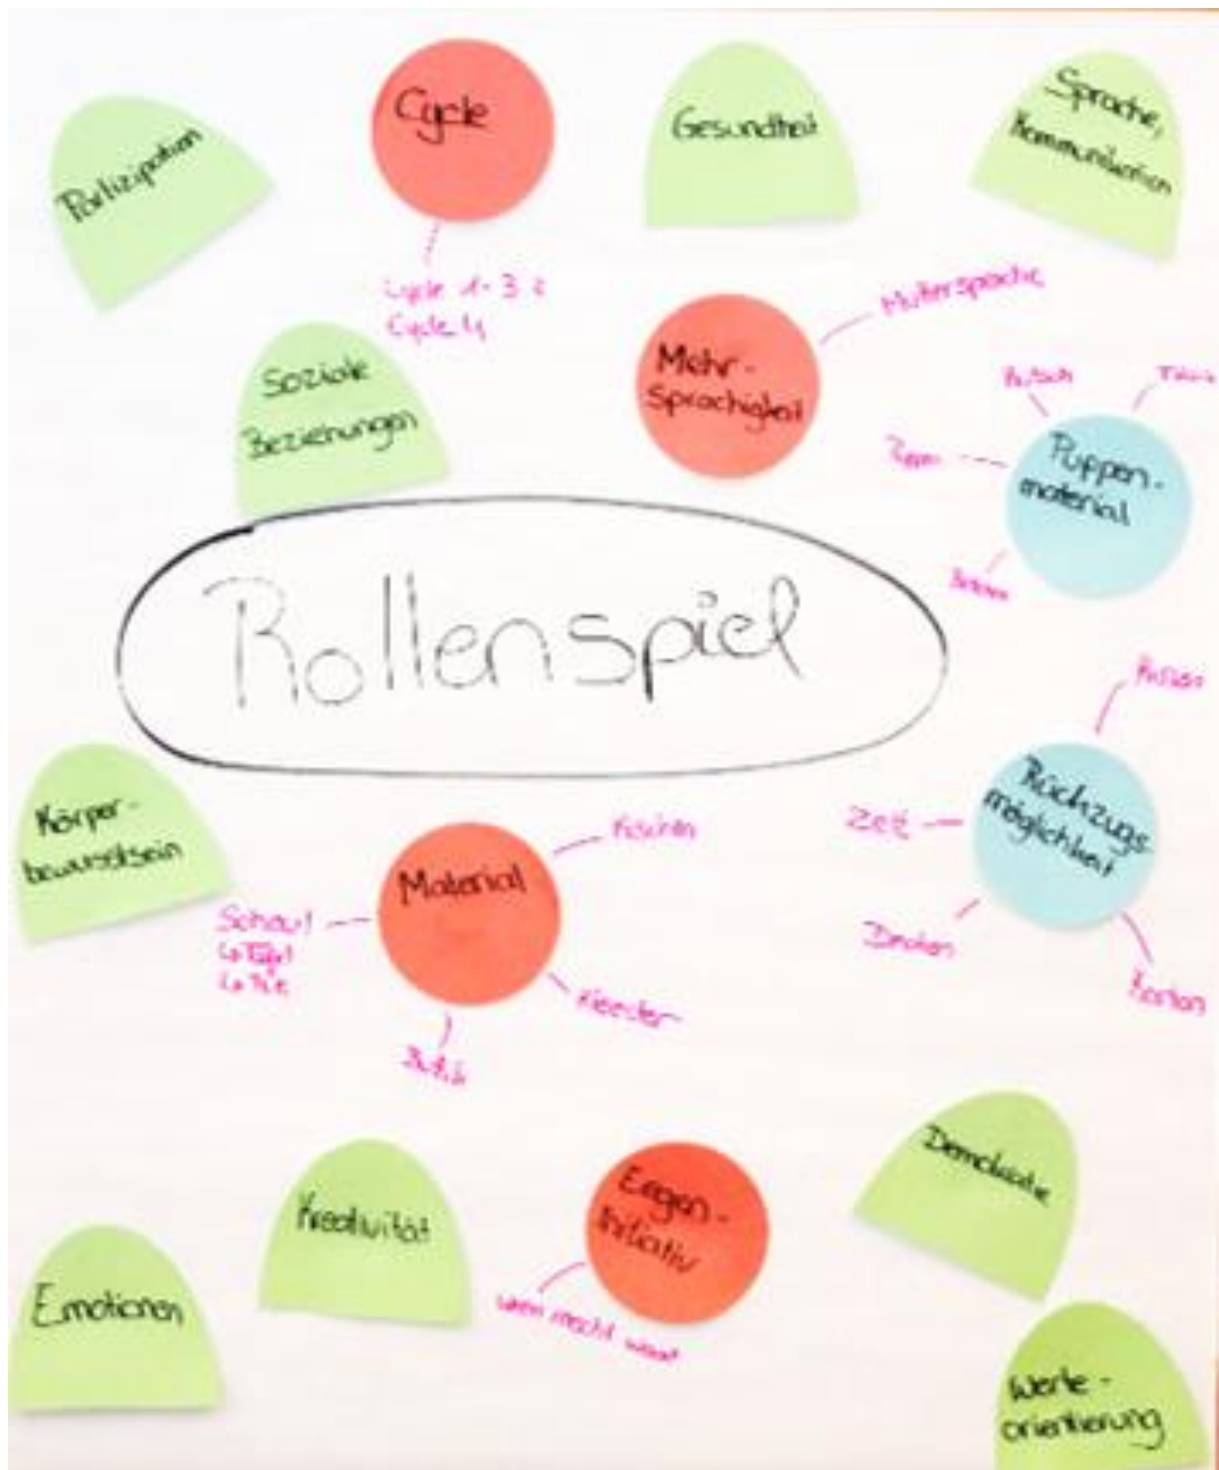 Partizipation
Cycle
Gesundheit
Sprache,
Kommunikation
Cycle 1-3 :
Cycle 4
Soziale
Beziehungen
Mehr-
sprachigkeit
Muttersprache
Puppen-
material
Rollenspiel
Körper-
bewusstsein
Material
Kischen
Schoul
Kleeder
Rückzugs-
möglichkeit
Zelt
Decken
Karton
Kreativität
Eegen-
initiativ
ween mecht waat
Demokratie
Emotionen
Werte-
orientierung